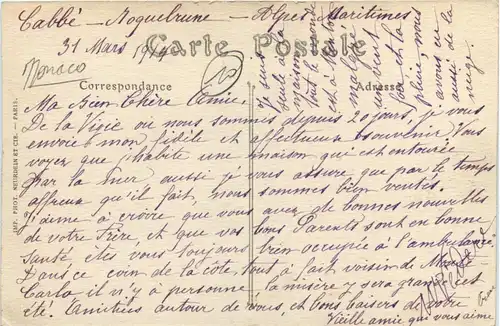 Cabbé - Roquebrune - Alpes Maritimes
31 Mars 1914
Carte Postale
Monaco
Correspondance
Adresse
Ma Bien Chère Amie.
De la Vigie où nous sommes depuis 20 jours, je vous
envoie mon fidèle et affectueux souvenir Vous
voyez que j'habite une maison qui est entourée
par la mer aussi je vous assure que par le temps
affreux qu'il fait, nous sommes bien ventés.
J'aime à croire que vous avez de bonnes nouvelles
de votre Frère, et que vos bons Parents sont en bonne
santé êtes vous toujours bien occupée à l'ambulance
Dans ce coin de la côte, tout à fait voisin de Monte
Carlo il n'y a personne, la misère y sera grande cet
été. Amitiés autour de vous, et bons baisers de votre
Vieille amie qui vous aime
J'y suis
seule à la
maison
tout le monde
est à
malgré
le vent
et la
pluie, nous
avons eu
aussi de la
neige